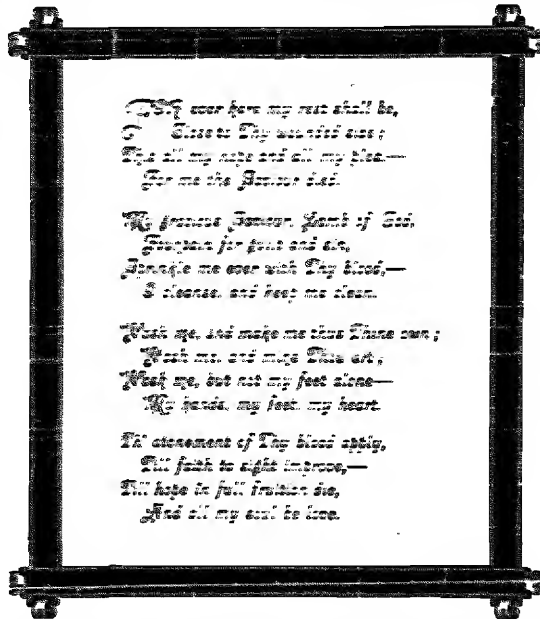 ever here my rest shall be,
Close to Thy wounded side;
This all my hope and all my plea,—
For me the Saviour died.
My Saviour, Lamb of God,
Fountain for guilt and sin,
Sprinkle me ever with Thy blood,—
& cleanse, and keep me clean.
Wash me, and make me thus Thine own;
Wash me, and mine Thou art;
Wash me, but not my feet alone—
My hands, my feet, my heart.
Th' atonement of Thy blood apply,
Till faith to sight improve,—
Till hope in full fruition die,
And all my soul be love.